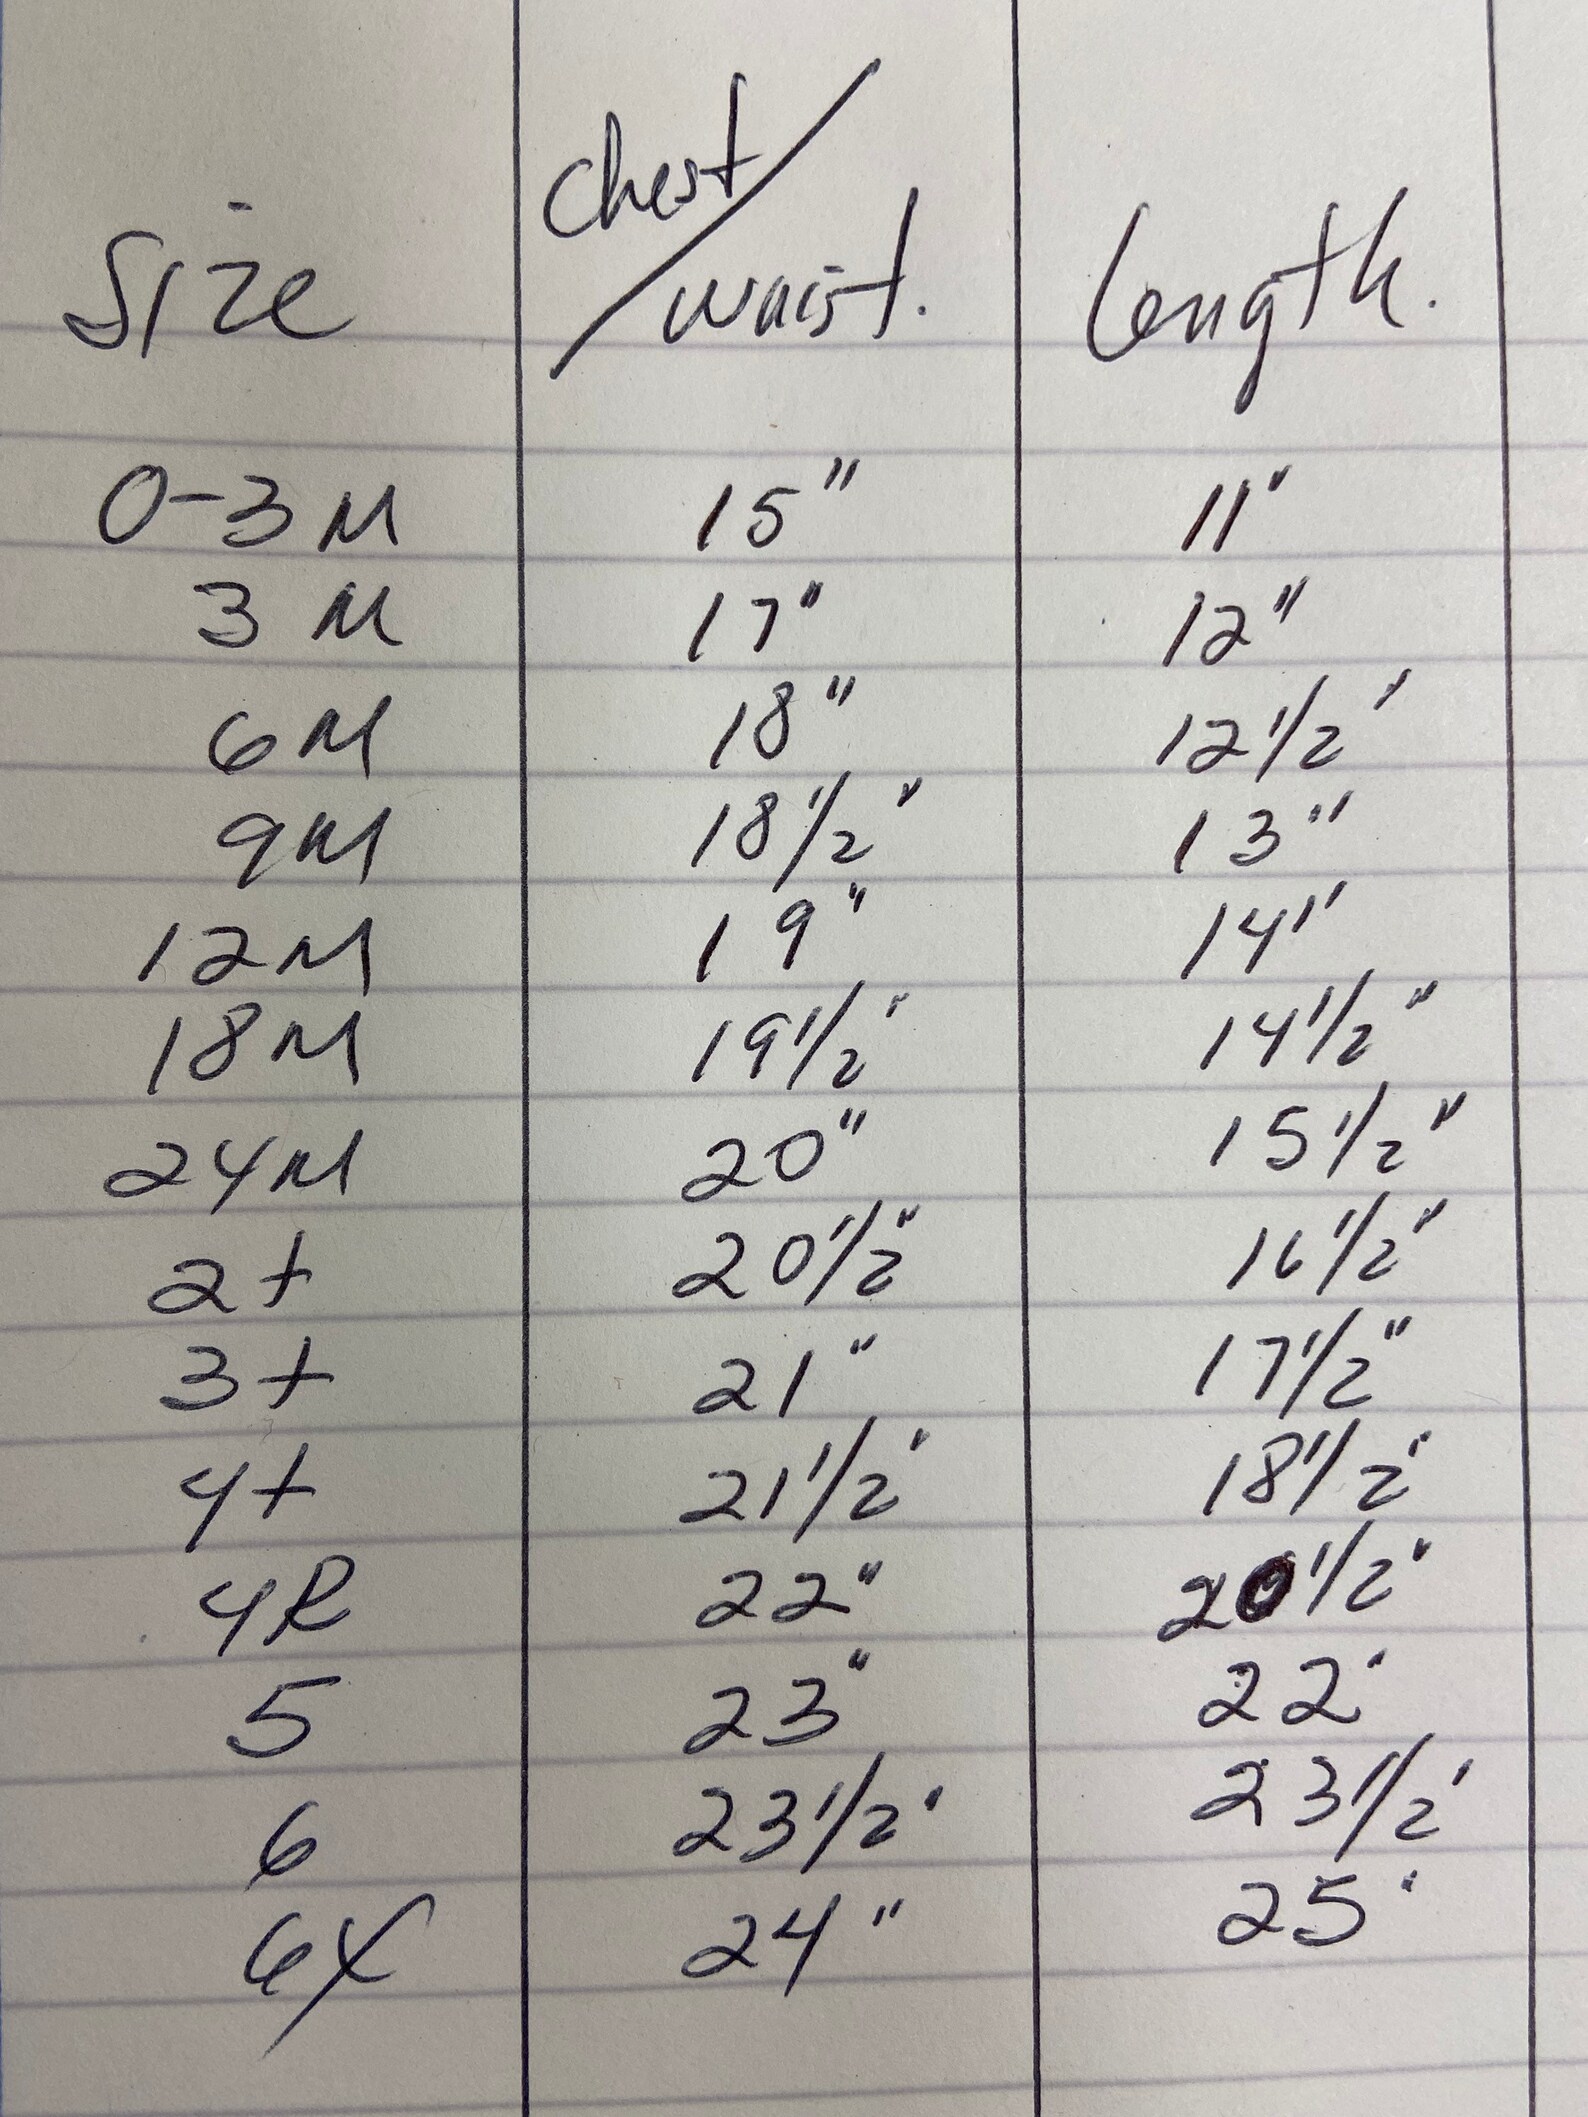 Size chest/waist. length.
0-3M 15" 11"
3M 17" 12"
6M 18" 12 1/2"
9M 18 1/2" 13"
12M 19" 14"
18M 19 1/2" 14 1/2"
24M 20" 15 1/2"
2t 20 1/2" 16 1/2"
3t 21" 17 1/2"
4t 21 1/2" 18 1/2"
4R 22" 20 1/2"
5 23" 22"
6 23 1/2" 23 1/2"
6X 24" 25"